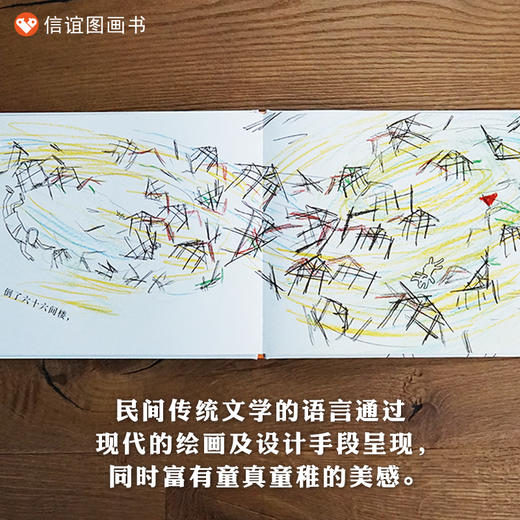 信谊图画书
倒了六十六间楼，
民间传统文学的语言通过
现代的绘画及设计手段呈现，
同时富有童真童稚的美感。